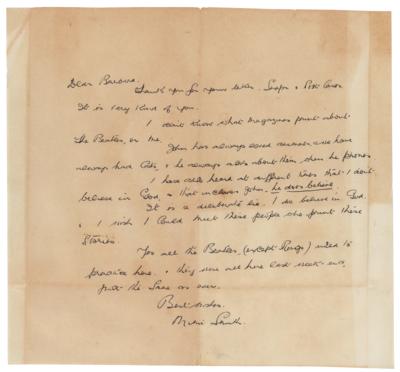 Dear Barbara.
Thank you for your letter. Snaps & Post Card
It is very kind of you.
I don't know what magazines print about
the Beatles, or me.
John has always loved animals, we have
always had Cats, & he always asks about them, when he phones
I have also heard at different times that I don't
believe in God, & that includes John, he does believe
It is a deliberate lie. I do believe in God,
& I wish I could meet these people who print these
Stories.
Yes all the Beatles, (except Ringo) used to
practice here, & they were all here last week-end,
just the same as ever.
Best wishes.
Mimi Smith.